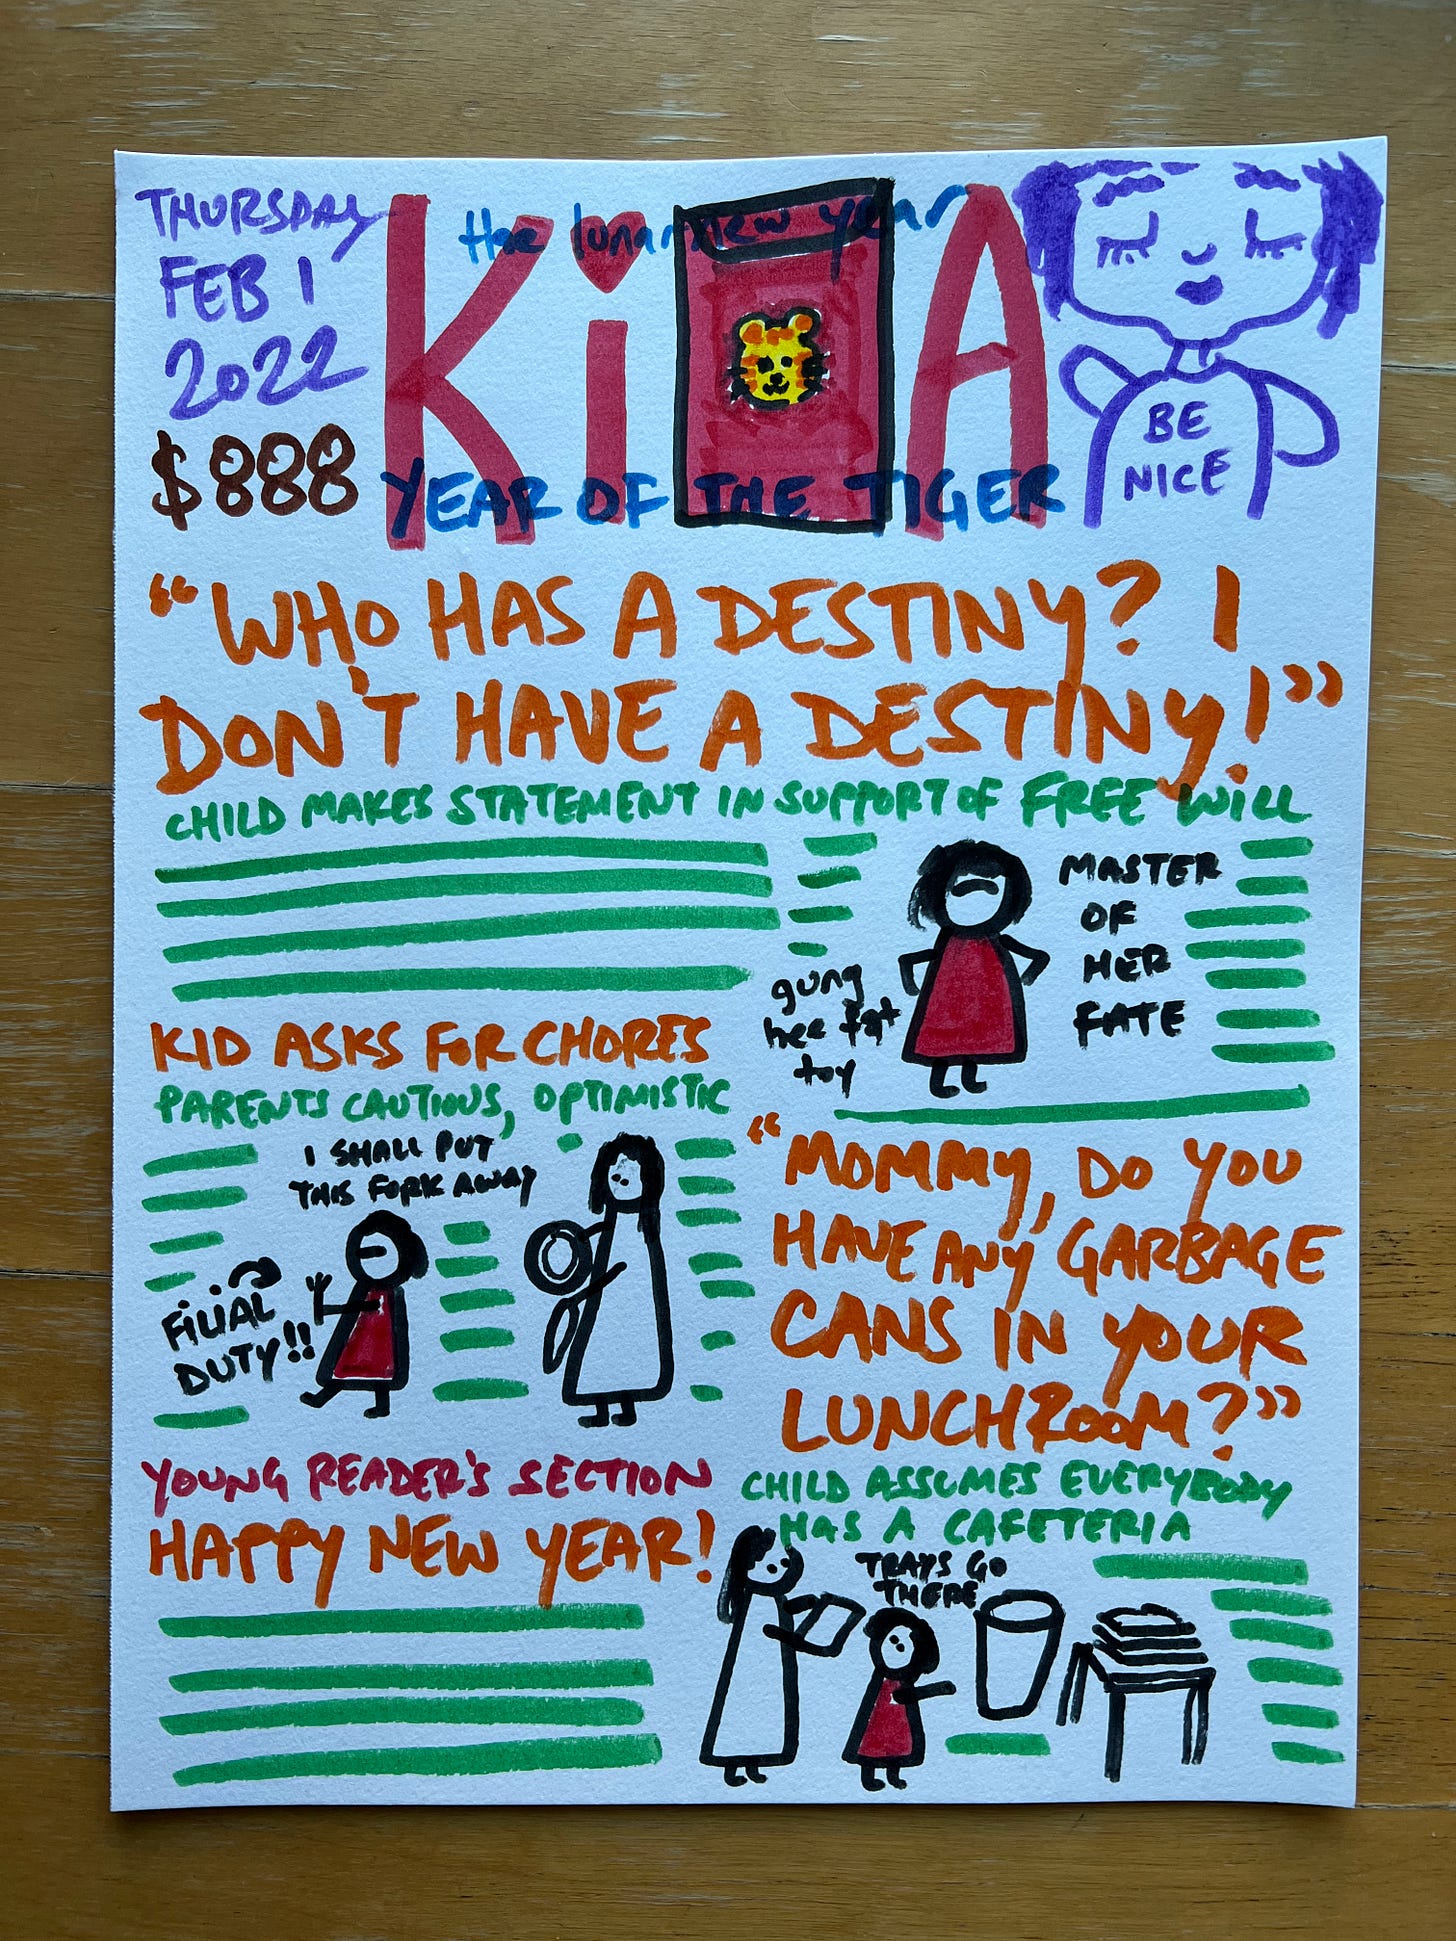 THURSDAY
FEB 1
2022
$888
KiA
Hae lunar new year
YEAR OF THE TIGER
BE
NICE
"WHO HAS A DESTINY? I
DON'T HAVE A DESTINY!"
CHILD MAKES STATEMENT IN SUPPORT OF FREE WILL
MASTER
OF
HER
FATE
gung
hee fat
toy
KID ASKS FOR CHORES
PARENTS CAUTIOUS, OPTIMISTIC
I SHALL PUT
THIS FORK AWAY
FILIAL
DUTY!!
"MOMMY, DO YOU
HAVE ANY GARBAGE
CANS IN YOUR
LUNCHROOM?"
CHILD ASSUMES EVERYBODY
HAS A CAFETERIA
TRAYS GO
THERE
YOUNG READER'S SECTION
HAPPY NEW YEAR!